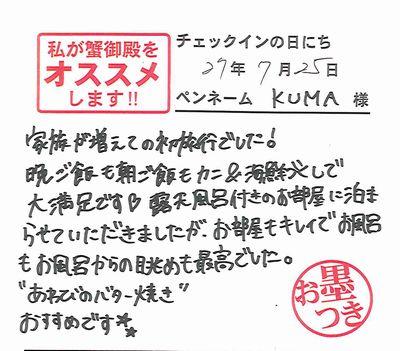 私が蟹御殿を
オススメ
します!!
チェックインの日にち
27年7月25日
ペンネーム KUMA 様
家族が増えての初旅行でした!
晩ご飯も朝ご飯もカニ&海鮮づくしで
大満足です♡ 露天風呂付きのお部屋に泊ま
らせていただきましたが、お部屋もキレイでお風呂
もお風呂からの眺めも最高でした。
"あわびのバター焼き"
おすすめです★★
お墨つき